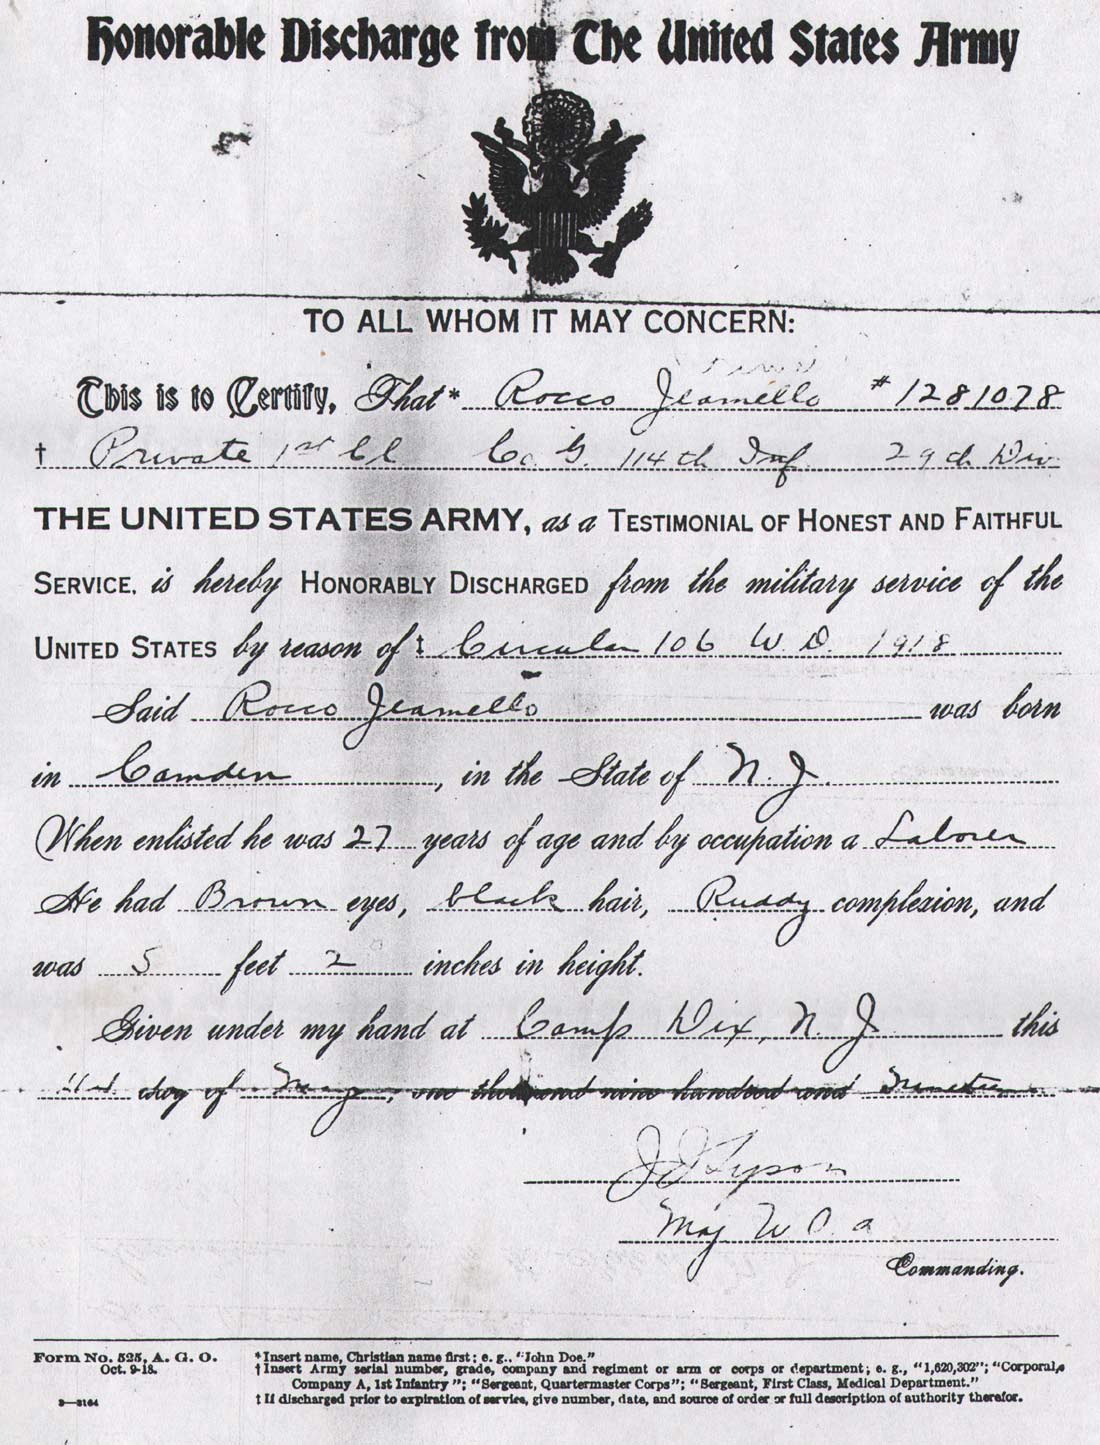 Honorable Discharge from The United States Army
TO ALL WHOM IT MAY CONCERN:
This is to Certify, That* Rocco Jeamello #1281078
† Private 1st Cl Co. G. 114th Inf. 29th Div.
THE UNITED STATES ARMY, as a TESTIMONIAL OF HONEST AND FAITHFUL
SERVICE, is hereby HONORABLY DISCHARGED from the military service of the
UNITED STATES by reason of ‡ Circular 106 W. D. 1918
Said Rocco Jeamello was born
in Camden, in the State of N. J.
When enlisted he was 27 years of age and by occupation a Laborer
He had Brown eyes, black hair, Ruddy complexion, and
was 5 feet 2 inches in height.
Given under my hand at Camp Dix, N. J. this
day of May, one thousand nine hundred and Nineteen
J Tyson
Maj
Commanding.
Form No. 525, A. G. O.
Oct. 9-18.
3—3164
*Insert name, Christian name first; e. g., "John Doe."
†Insert Army serial number, grade, company and regiment or arm or corps or department; e. g., "1,620,302"; "Corporal,
Company A, 1st Infantry"; "Sergeant, Quartermaster Corps"; "Sergeant, First Class, Medical Department."
‡If discharged prior to expiration of service, give number, date, and source of order or full description of authority therefor.